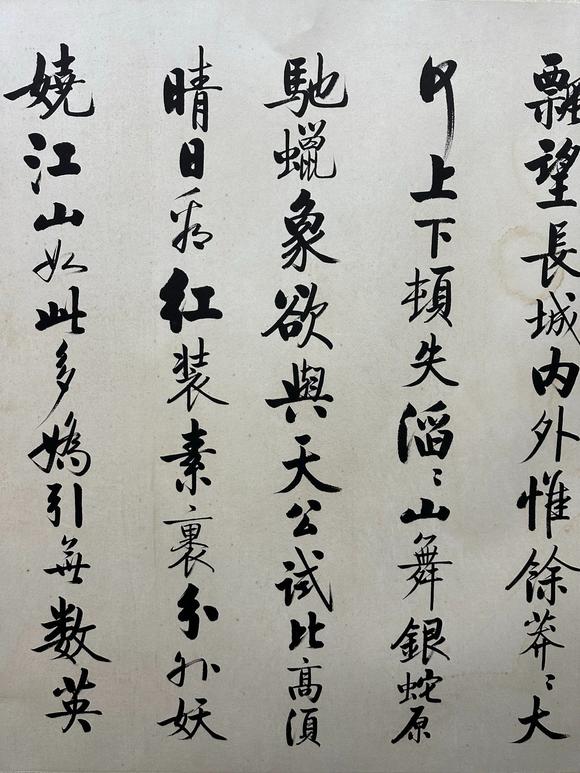 飄望長城内外惟餘莽〻大
河上下頓失滔〻山舞銀蛇原
馳蠟象欲與天公試比高須
晴日看紅装素裹分外妖
嬈江山如此多嬌引無数英